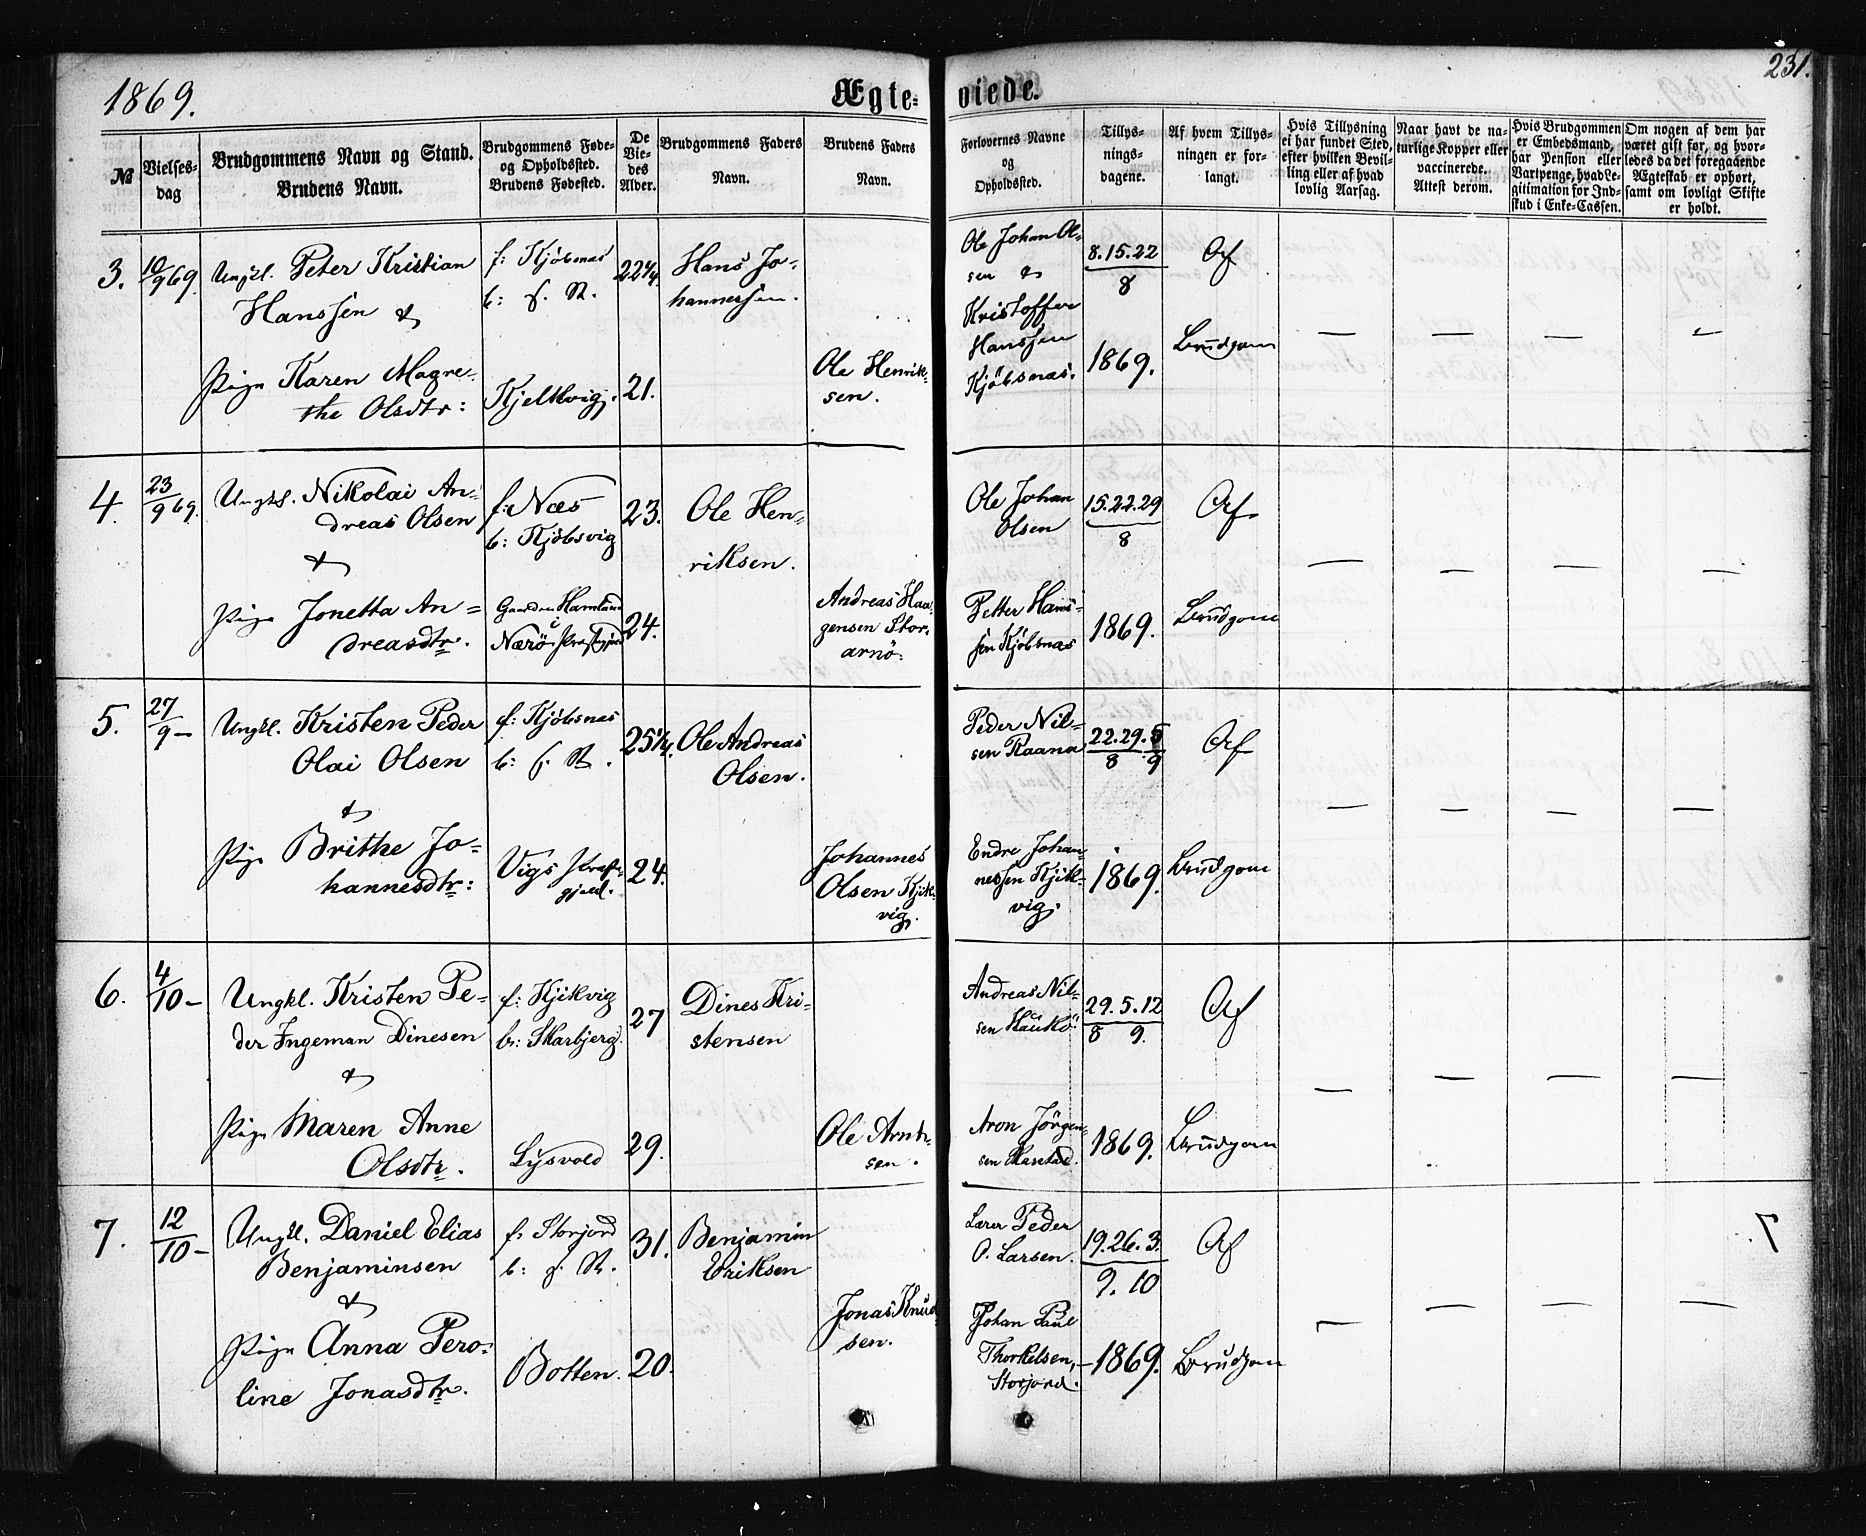 1869.
Ægte-
viede.
231.
№
Vielses-
dag
Brudgommens Navn og Stand.
Brudens Navn.
Brudgommens Føde-
og Opholdssted.
Brudens Fødested.
De
Vie-
des
Alder.
Brudgommens Faders
Navn.
Brudens Faders
Navn.
Forlovernes Navne
og
Opholdssted.
Tillys-
nings-
dagene.
Af hvem Tillys-
ningen er for-
langt.
Hvis Tillysning
ei har fundet Sted,
efter hvilken Bevil-
ling eller af hvad
lovlig Aarsag.
Naar havt de na-
turlige Kopper eller
vaccinerede.
Attest derom.
Hvis Brudgommen
er Embedsmand,
har Pension eller
Vartpenge, hvad Le-
gitimation for Ind-
skud i Enke-Cassen.
Om nogen af dem har
været gift før, og hvor-
ledes da det foregaaende
Ægteskab er ophørt,
samt om lovligt Skifte
er holdt.
3.
10/9 69.
Ungkl. Peter Kristian
Hanssen &
Pige Karen Magre-
the Olsdtr:
f: Kjöbsnæs
b: s. St.
Kjelkvig.
22 1/4
21.
Hans Jo-
hannessen.
Ole Henrik-
sen.
Ole Johan Ol-
sen &
Kristoffer
Hanssen
Kjöbsnæs.
8.15.22
8
1869.
Af
Brudgom
4.
23/9 69.
Ungkl. Nikolai An-
dreas Olsen
&
Pige Jonetta An-
dreasdtr.
f: Næs
b: Kjöbsvig
Gaarden Hamland
i
Nærö Præstegjeld
23.
24.
Ole Hen-
riksen.
Andreas Haa-
gensen Stor-
arnö.
Ole Johan
Olsen
Petter Hans-
sen Kjöbsnæs
15.22.29
8
1869.
Af
Brudgom
5.
27/9 —
Ungkl. Kristen Peder
Olai Olsen
&
Pige Brithe Jo-
hannesdtr:
f: Kjöbsnæs
b: s. St.
Vigs Præste-
gjeld.
25 1/4.
24.
Ole Andreas
Olsen.
Johannes
Olsen Kjik-
vig.
Peder Nil-
sen Raana
Endre Johan-
nessen Kjik-
vig.
22.29.5
8 9
1869.
Af
Brudgom
6.
4/10 —
Ungkl. Kristen Pe-
der Ingeman Dinesen
&
Pige Maren Anne
Olsdtr.
f: Kjikvig
b: Skarbjerg.
Lysvold
27
29.
Dines Kri-
stensen
Ole Arnt-
sen.
Andreas Nil-
sen Haukö
Aron Jörgen-
sen
29.5.12
8 9.
1869.
Af
Brudgom
7.
12/10 —
Ungkl. Daniel Elias
Benjaminsen
&
Pige Anna Pero-
line Jonasdtr.
f. Storjord
b: s. St.
Botten.
31.
20.
Benjamin
Eriksen
Jonas Knud-
sen.
Lærer Peder
O. Larsen.
Johan Paul
Thorkelsen,
Storjord.
19.26.3.
9. 10
1869.
Af
Brudgom
7.